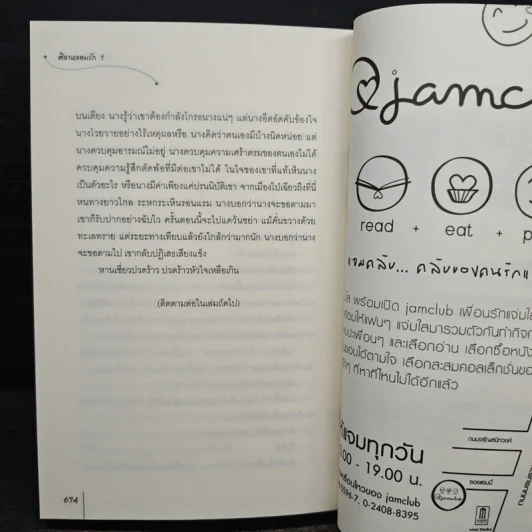 ศิลาหลอมรัก 1
บนเตียง นางรู้ว่าเขาต้องกำลังโกรธนางแน่ๆ แต่นางอึดอัดคับข้องใจ
นางโวยวายอย่างไร้เหตุผลหรือ นางคิดว่าตนเองมีบ้างนิดหน่อย แต่
นางควบคุมอารมณ์ไม่อยู่ นางควบคุมความเศร้าตรมของตนเองไม่ได้
ควบคุมความรู้สึกตัดพ้อที่มีต่อเขาไม่ได้ ในใจของเขาที่แท้เห็นนาง
เป็นตัวอะไร หรือนางมีค่าเพียงแค่ปรนนิบัติเขา จากเมืองไปเฉียวถึงที่นี่
หนทางยาวไกล ระหกระเหินรอนแรม นางบอกว่านางจะขอตามมา
เขาก็รับปากอย่างฉับไว ครั้นตอนนี้จะไปแคว้นย่า แม้คั่นขวางด้วย
ทะเลทราย แต่ระยะทางเทียบแล้วยังใกล้กว่ามากนัก นางบอกว่านาง
จะขอตามไป เขากลับปฏิเสธเสียงแข็ง
หานเซี่ยวปวดร้าว ปวดร้าวหัวใจเหลือเกิน
(ติดตามต่อในเล่มถัดไป)
674
jamcl
read + eat + p
แจมคลับ... คลับของคนรักแ
พร้อมเปิด jamclub เพื่อนรักแจ่มใ
ให้แฟนๆ แจ่มใสมารวมตัวกันทำกิจก
เพื่อนๆ และเลือกอ่าน เลือกซื้อหนัง
ได้ตามใจ เลือกสะสมคอลเล็กชั่นขอ
ที่หาที่ไหนไม่ได้อีกแล้ว
แจมทุกวัน
.00 - 19.00 น.
ของ jamclub
0-2408-8395
ถนนจรัญสนิทวงศ์
jamclub